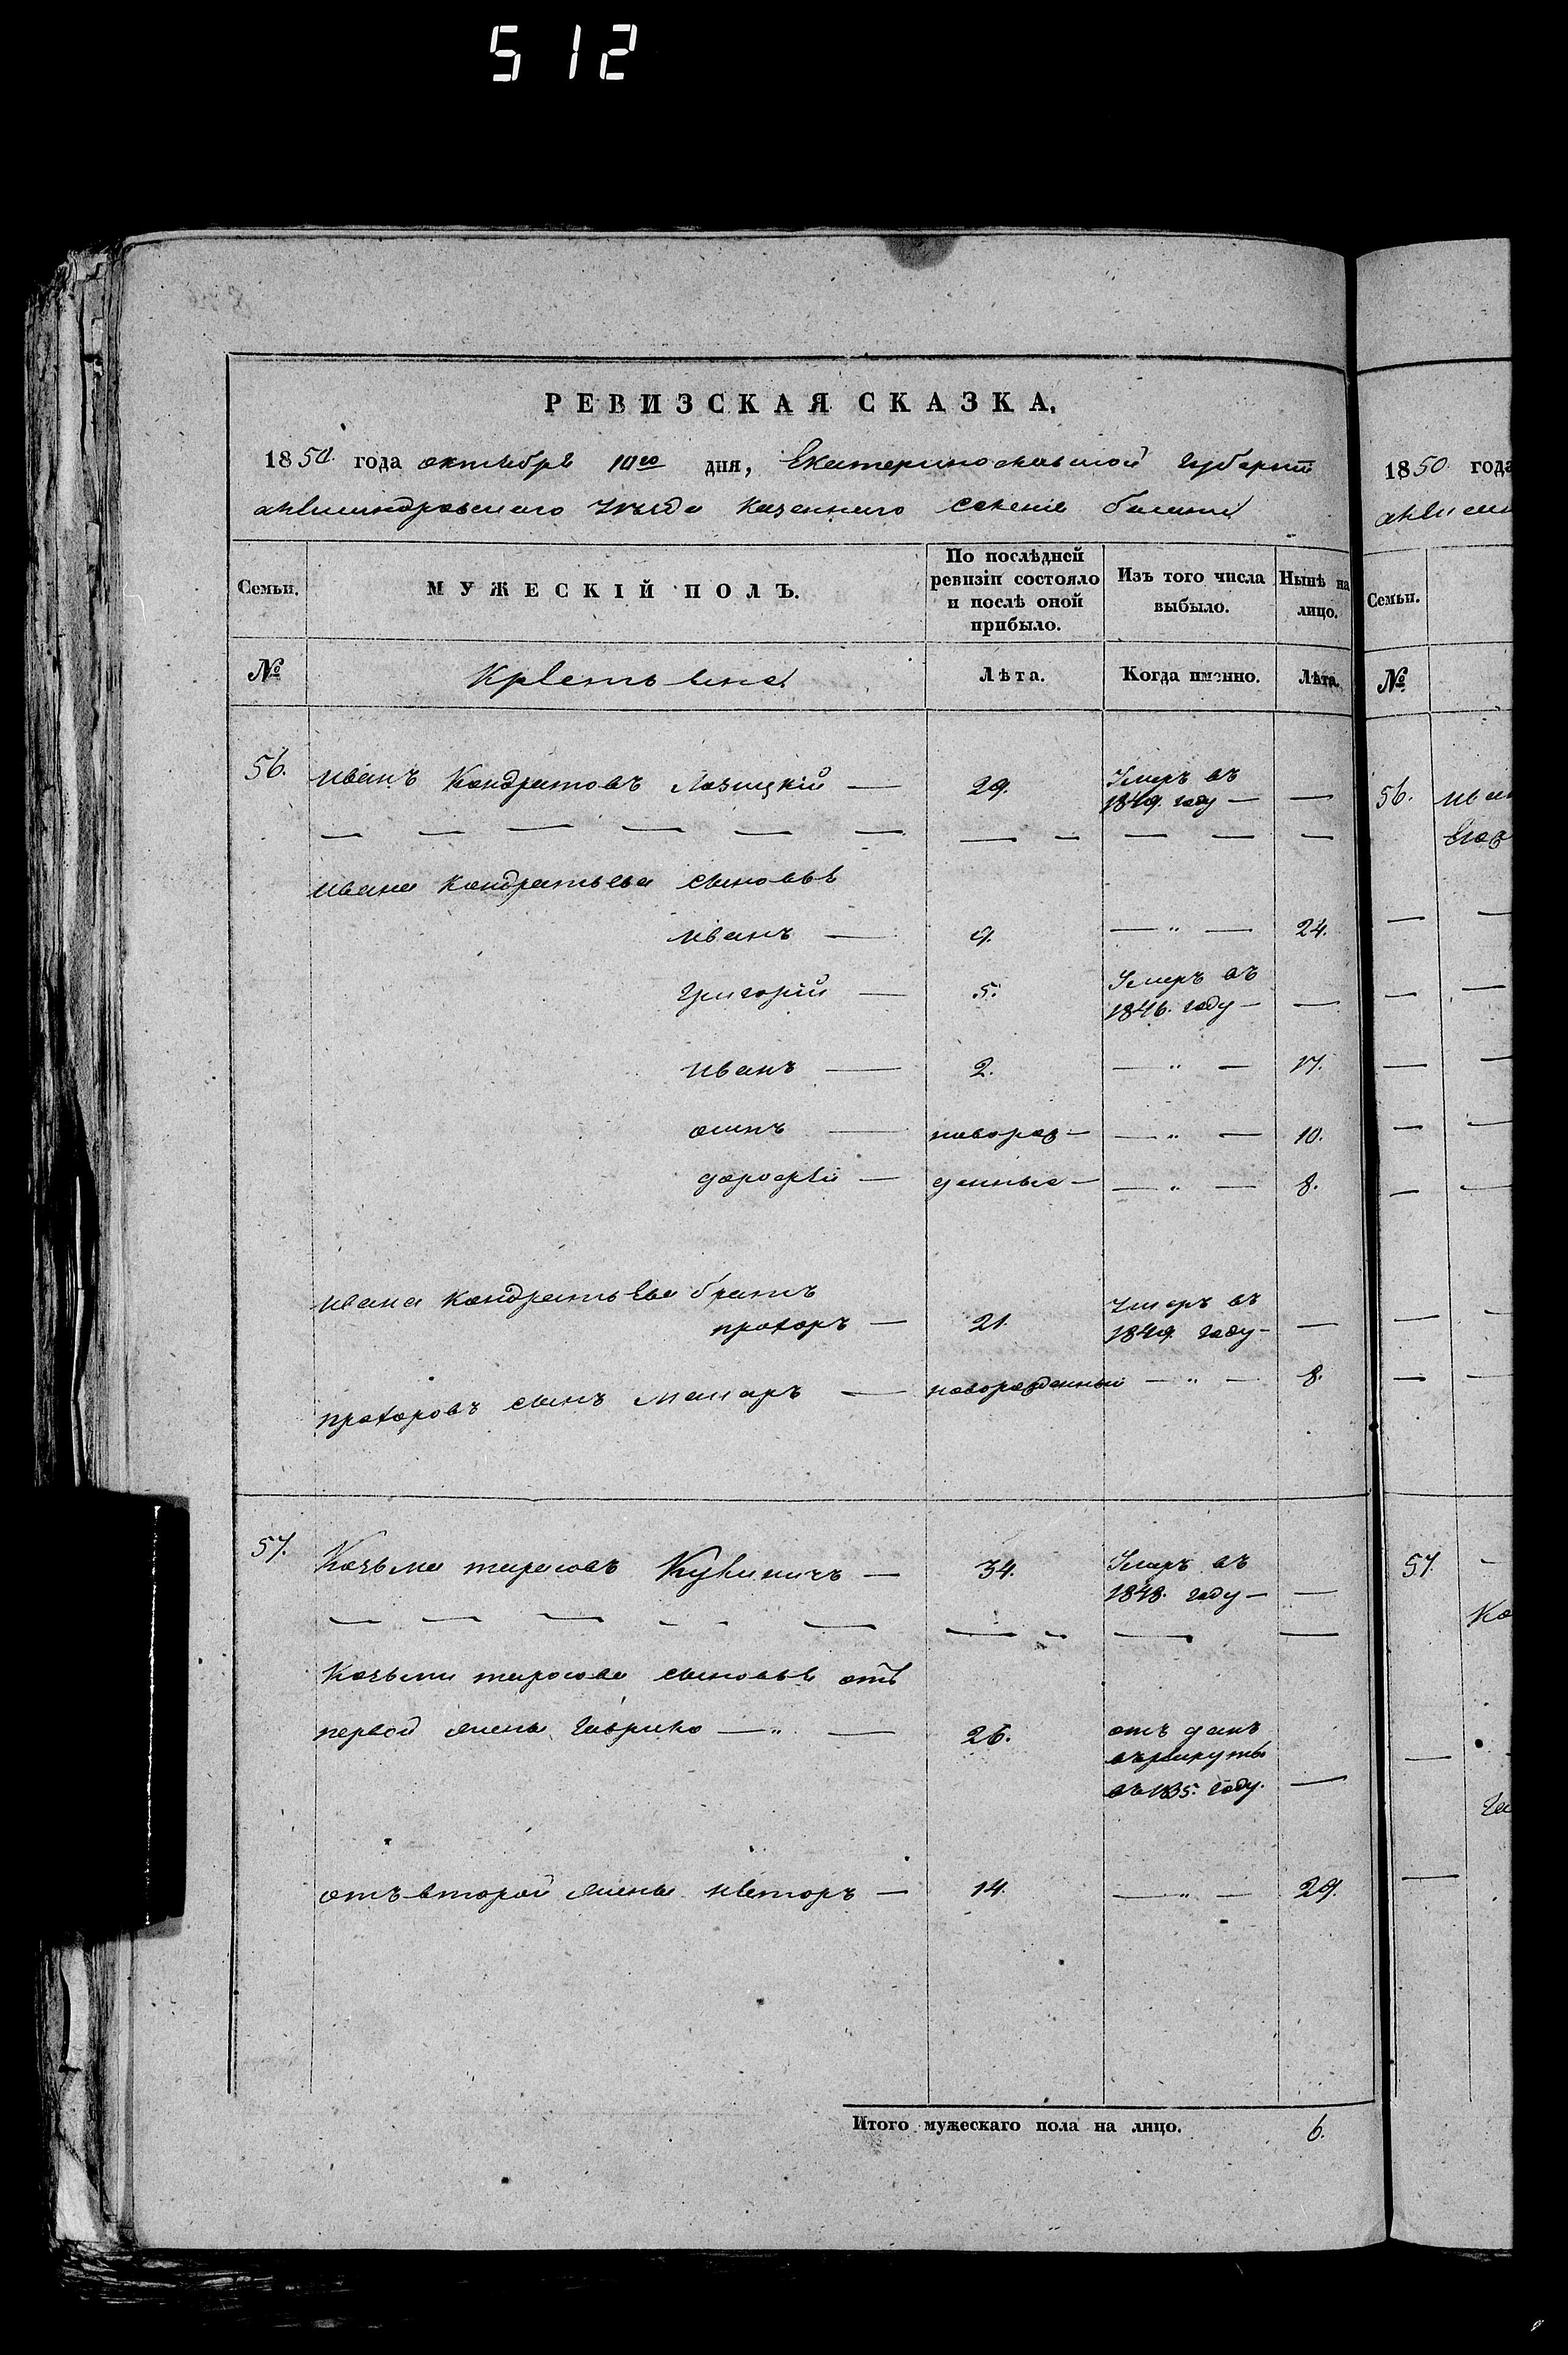 512
РЕВИЗСКАЯ СКАЗКА.
1850 года октября 10го дня, Екатеринославской губернии
Казеннаго Селенія
Семьи.
МУЖЕСКІЙ ПОЛЪ.
По послѣдней ревизіи состояло и послѣ оной прибыло.
Изъ того числа выбыло.
Нынѣ на лицо.
№
Лѣта.
Когда именно.
Лѣта.
56. Иванъ Кондратовъ Лозицкій — 29. Умеръ въ
1849. году — —
Ивана Кондратьева сыновья
Иванъ — 9. — „ — 24.
Григорій — 5. Умеръ въ
1846. году — —
Иванъ — 2. — „ — 17.
осипъ — новорож— — „ — 10.
дорофей — денные — — „ — 8.
Ивана Кондратьева братъ
прохоръ — 21. Умеръ въ
1849. году — —
прохоровъ сынъ Макаръ — новорожденный — „ — 8.
57. Козьма тарасовъ — 34. Умеръ въ
1848. году — —
Козьмы тарасова сыновья отъ
первой жены Гаврило — „ — 26. отъданъ
въ рекруты
въ 1835. году. —
отъ второй жены — 14. — „ — 29.
Итого мужескаго пола на лицо. 6.
1850 года
Семьи.
№
56.
57.